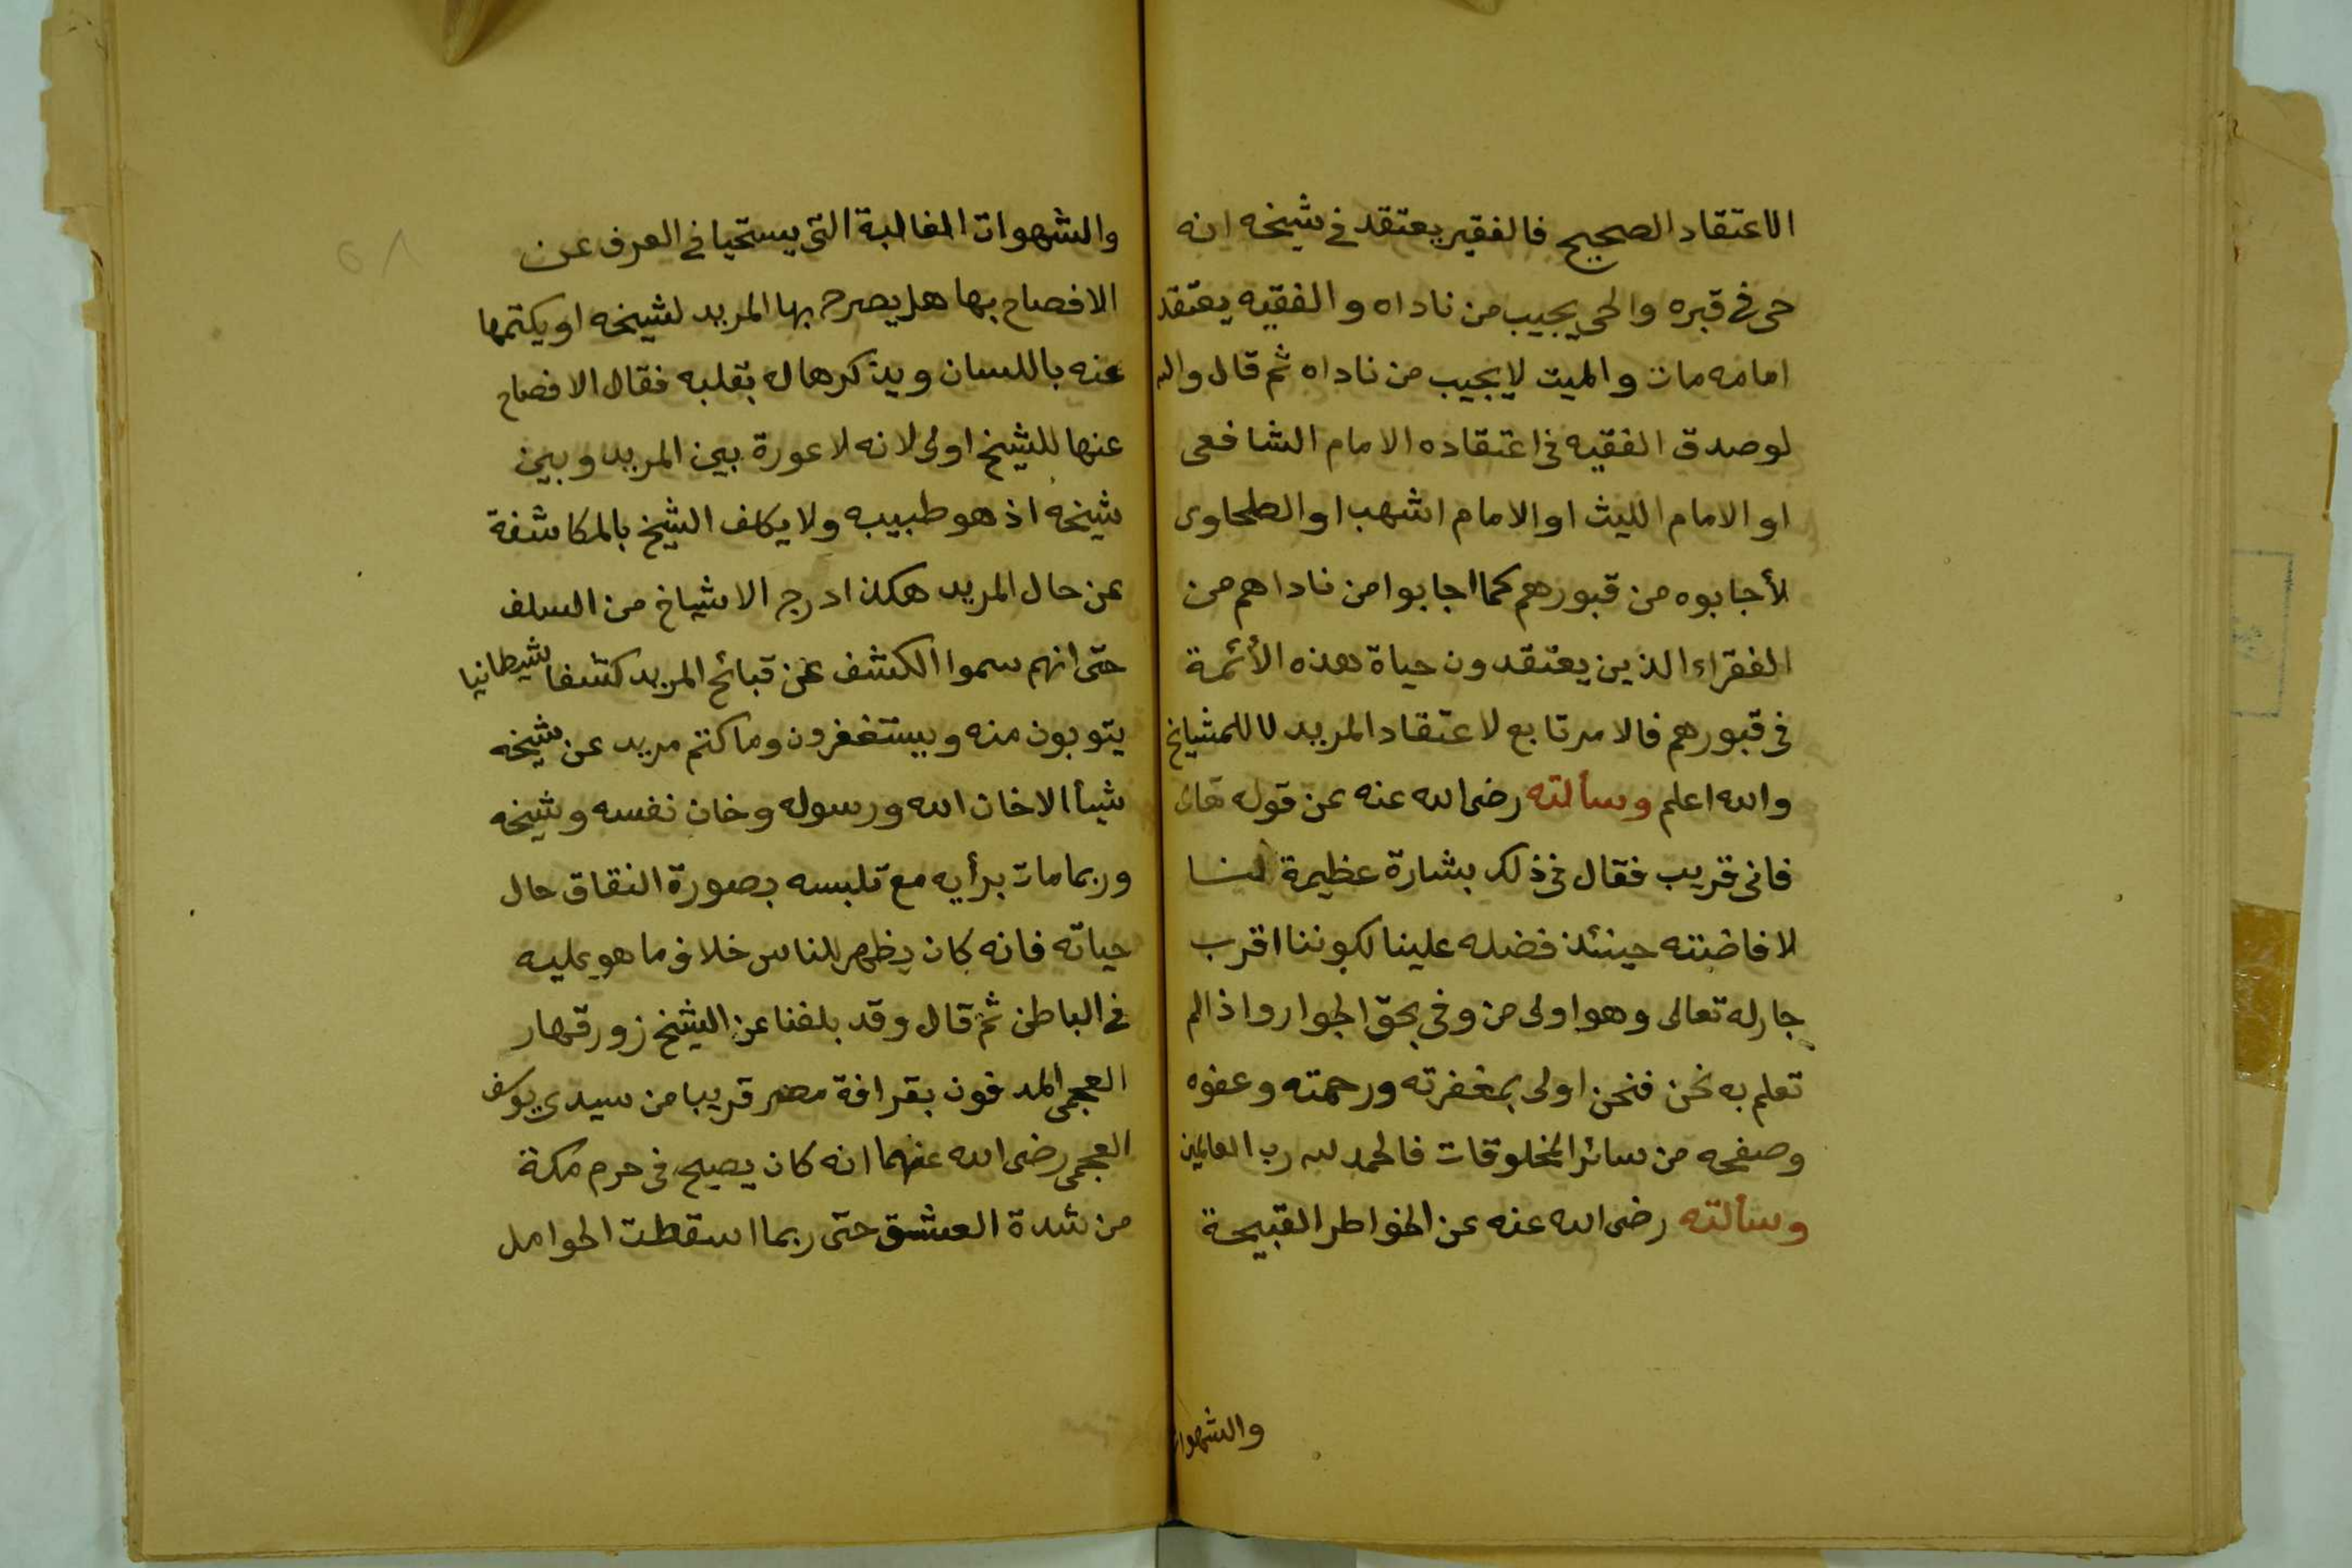 الاعتقاد الصحيح فالفقير يعتقد في شيخه انه
حى فى قبره والحى يجيب من ناداه والفقيه يعتقد
امامه مات والميت لا يجيب من ناداه ثم قال والله
لو صدق الفقيه فى اعتقاده الامام الشافعى
او الامام الليث او الامام اشهب او الطحاوى
لأجابوه من قبورهم كما اجابوا من ناداهم من
الفقراء الذين يعتقدون حياة هذه الأئمة
فى قبورهم فالامر تابع لاعتقاد المريد لا للمشايخ
والله اعلم وسألته رضى الله عنه عن قوله تعالى
فانى قريب فقال فى ذلك بشارة عظيمة لنا
لافاضته حينئذ فضله علينا لكوننا اقرب
جار له تعالى وهو اولى من وفى بحق الجوار واذا لم
تعلم به نحن فنحن اولى بمغفرته ورحمته وعفوه
وصفحه من سائر المخلوقات فالحمد لله رب العالمين
وسألته رضى الله عنه عن الخواطر القبيحة
والشهوات
والشهوات الغالبة التى يستحيا فى العرف عن
الافصاح بها هل يصرح بها المريد لشيخه او يكتمها
عنه باللسان ويذكرها له بقلبه فقال الافصاح
عنها للشيخ اولى لانه لا عورة بين المريد وبين
شيخه اذ هو طبيبه ولا يكلف الشيخ بالمكاشفة
عن حال المريد هكذا درج الاشياخ من السلف
حتى انهم سموا الكشف عن قبائح المريد كشفا شيطانيا
يتوبون منه ويستغفرون وما كتم مريد عن شيخه
شيأ الا خان الله ورسوله وخان نفسه وشيخه
وربما مات برأيه مع تلبسه بصورة النفاق حال
حياته فانه كان يظهر للناس خلاف ما هو عليه
فى الباطن ثم قال وقد بلغنا عن الشيخ زورقهار
العجمى المدفون بقرافة مصر قريبا من سيدى يوسف
العجمى رضى الله عنهما انه كان يصيح فى حرم مكة
من شدة العشق حتى ربما اسقطت الحوامل